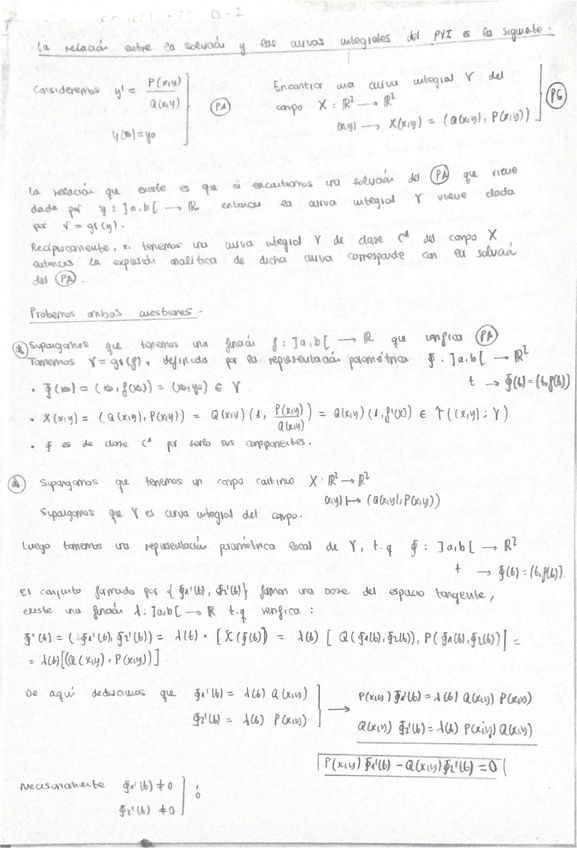 La relación entre la solución y las curvas integrales del PVI es la siguiente:
Consideremos y' = P(x,y) / Q(x,y)
y(x0) = y0
(PA)
Encontrar una curva integral γ del
campo X : ℝ² → ℝ²
(x,y) → X(x,y) = (Q(x,y), P(x,y))
(PG)
La relación que existe es que si encontramos una solución del (PA) que viene
dada por y : ]a,b[ → ℝ entonces la curva integral γ viene dada
por γ = gr(y).
Recíprocamente, si tenemos una curva integral γ de clase C¹ del campo X
entonces la expresión analítica de dicha curva corresponde con la solución
del (PA).
Probemos ambas cuestiones.-
Supongamos que tenemos una función f : ]a,b[ → ℝ que verifica (PA)
Tomemos γ = gr(f), definida por la representación paramétrica Φ : ]a,b[ → ℝ²
t → Φ(t) = (t, f(t))
• Φ(x0) = (x0, f(x0)) = (x0, y0) ∈ γ
• X(x,y) = (Q(x,y), P(x,y)) = Q(x,y) (1, P(x,y)/Q(x,y)) = Q(x,y) (1, f'(x)) ∈ T((x,y); γ)
• Φ es de clase C¹ por serlo sus componentes.
Supongamos que tenemos un campo continuo X : ℝ² → ℝ²
(x,y) ↦ (Q(x,y), P(x,y))
Supongamos que γ es curva integral del campo.
Luego tomemos una representación paramétrica local de γ, t.q Φ : ]a,b[ → ℝ²
t → Φ(t) = (t, f(t)).
El conjunto formado por {Φ1'(t), Φ2'(t)} forman una base del espacio tangente,
existe una función λ : ]a,b[ → ℝ t.q verifica :
Φ'(t) = (Φ1'(t), Φ2'(t)) = λ(t) · [X(Φ(t))] = λ(t) [Q(Φ1(t), Φ2(t)), P(Φ1(t), Φ2(t))] =
= λ(t)[(Q(x,y), P(x,y))].
De aquí deducimos que Φ1'(t) = λ(t) Q(x,y)
Φ2'(t) = λ(t) P(x,y)
→ P(x,y) Φ1'(t) = λ(t) Q(x,y) P(x,y)
Q(x,y) Φ2'(t) = λ(t) P(x,y) Q(x,y)
P(x,y) Φ1'(t) − Q(x,y) Φ2'(t) = 0
Necesariamente Φ1'(t) ≠ 0
Φ2'(t) ≠ 0